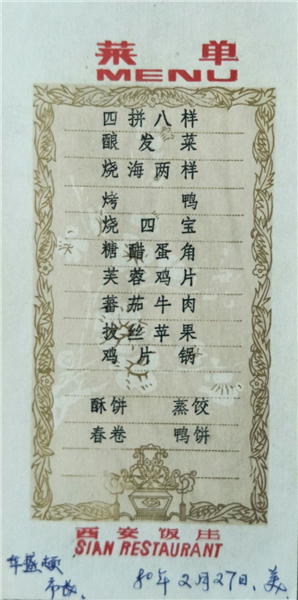 菜单
MENU
四拼八样
酿发菜
烧海两样
烤鸭
烧四宝
糖醋蛋角
芙蓉鸡片
蕃茄牛肉
拔丝苹果
鸡片锅
酥饼 蒸饺
春卷 鸭饼
西安饭庄
SIAN RESTAURANT
华盛顿
市长
80年2月27日、美、